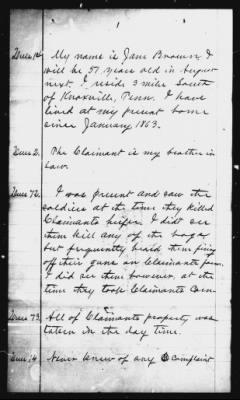 1
Ques 1st My name is Jane Brown, I
will be 57 years old in August
next. I reside 3 miles South
of Knoxville, Tenn. I have
lived at my present home
since January, 1863.
Ques 2. The Claimant is my brother in
law.
Ques 72. I was present and saw the
soldiers at the time they killed
Claimants heifer. I didt see
them kill any of the hogs,
but frequently heard them firing
off their guns on Claimants farm.
I did see them however, at the
time they took Claimants Corn.
Ques 73. All of Claimants property was
taken in the day time.
Ques 74 Never knew of any Complaint